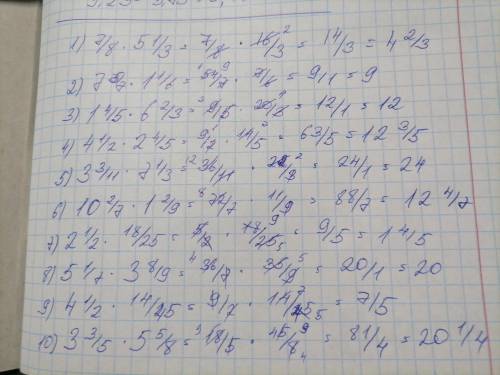 1) 7/8 · 5 1/3 = 7/8 · 16/3 2 = 14/3 = 4 2/3
2) 7 5/7 · 1 1/6 = 54/7 9 · 7/6 = 9/1 = 9
3) 1 4/5 · 6 2/3 = 3 9/5 · 20/3 4 = 12/1 = 12
4) 4 1/2 · 2 4/5 = 9/2 · 14/5 = 63/5 = 12 3/5
5) 3 3/11 · 7 1/3 = 12 36/11 · 22/3 2 = 24/1 = 24
6) 10 2/7 · 1 2/9 = 8 72/7 · 11/9 = 88/7 = 12 4/7
7) 2 1/2 · 18/25 = 5/2 · 18/25 9 5 = 9/5 = 1 4/5
8) 5 1/7 · 3 8/9 = 4 36/7 · 35/9 5 = 20/1 = 20
9) 4 1/2 · 14/45 = 9/7 · 14/45 7 5 = 7/5
10) 3 3/5 · 5 5/8 = 9 18/5 · 45/8 9 4 = 81/4 = 20 1/4